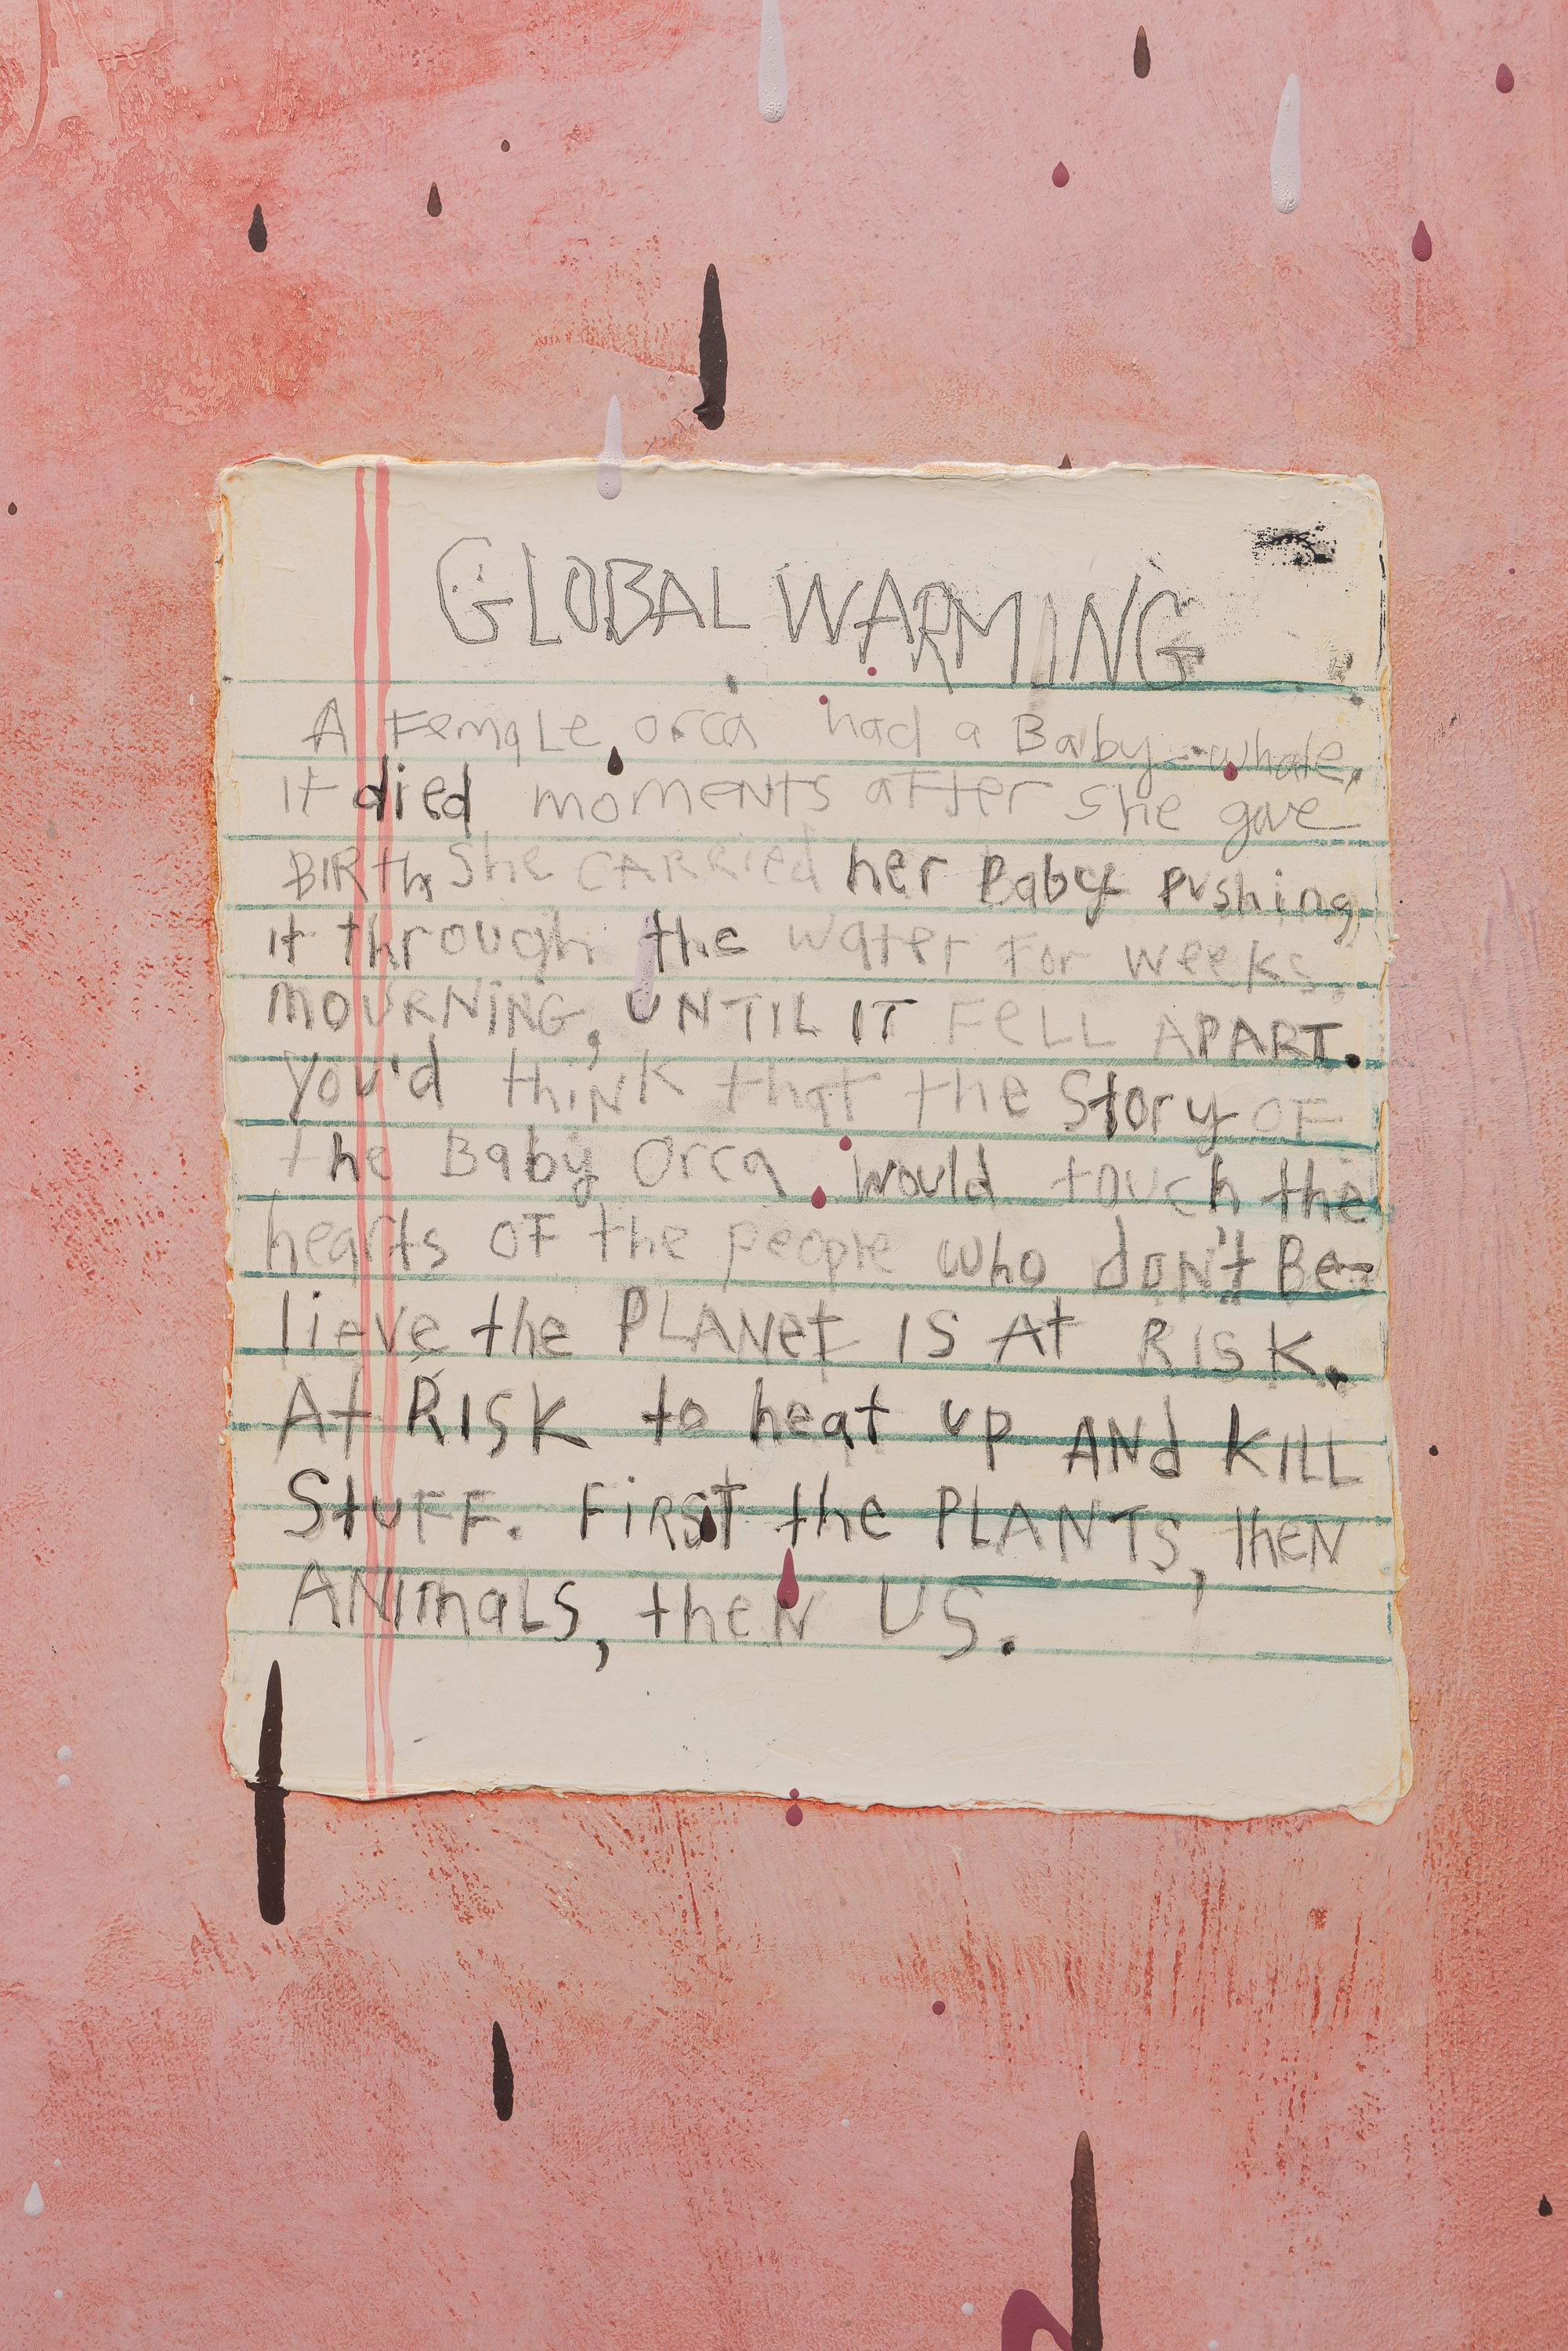 GLOBAL WARMING
A FemaLe orca had a Baby whale,
it died moments after she gave
BIRth She CARRied her Baby pushing
it through the water For weeks,
MOURNiNG, UNTIL IT FeLL APART.
You'd thiNk that the Story OF
the Baby Orca would touch the
hearts OF the people who doN't Be-
lieve the PLANet IS At RISK.
At RISK to heat up ANd KILL
StuFF. FiRST the PLANTS, theN
ANImaLS, theN US.